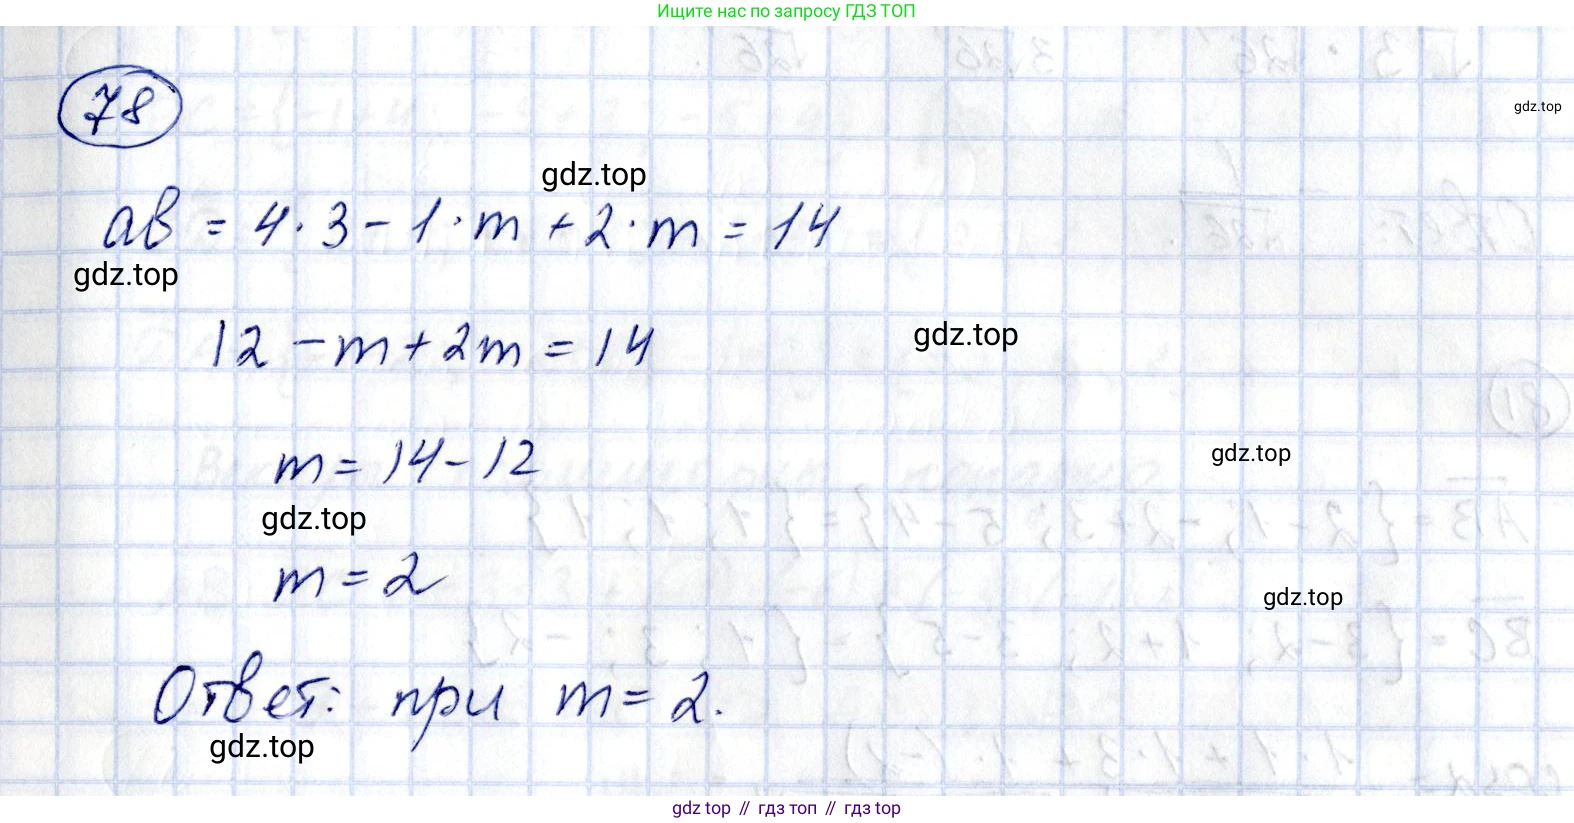 Ищите нас по запросу ГДЗ ТОП
78
gdz.top
gdz.top
ав = 4·3 - 1·m + 2·m = 14
gdz.top
12 - m + 2m = 14
gdz.top
m = 14 - 12
gdz.top
gdz.top
m = 2
gdz.top
Ответ: при m = 2.
gdz.top
gdz top // гдз топ // гдз top